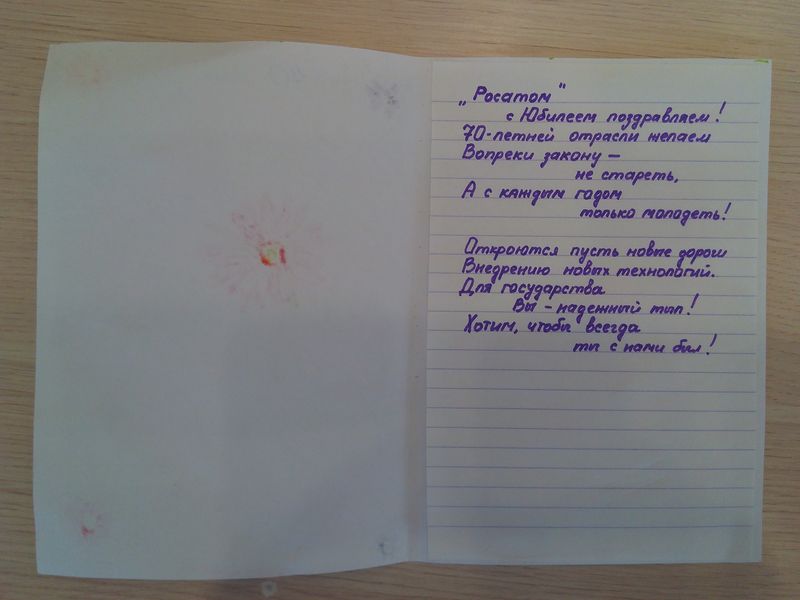 „Росатом"
с Юбилеем поздравляем!
70-летней отрасли желаем
Вопреки закону –
не стареть,
А с каждым годом
только молодеть!
Откроются пусть новые дороги
Внедрению новых технологий.
Для государства
Вы – надежный тыл!
Хотим, чтобы всегда
ты с нами был!